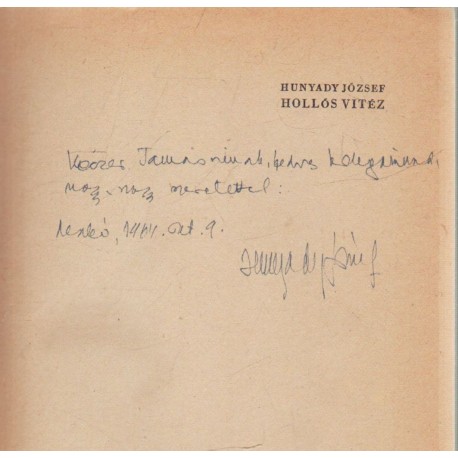 HUNYADY JÓZSEF
HOLLÓS VITÉZ
Tamásnénak, kedves kolegánknak,
nagy-nagy szeretettel:
1961. okt. 9.
Hunyady József